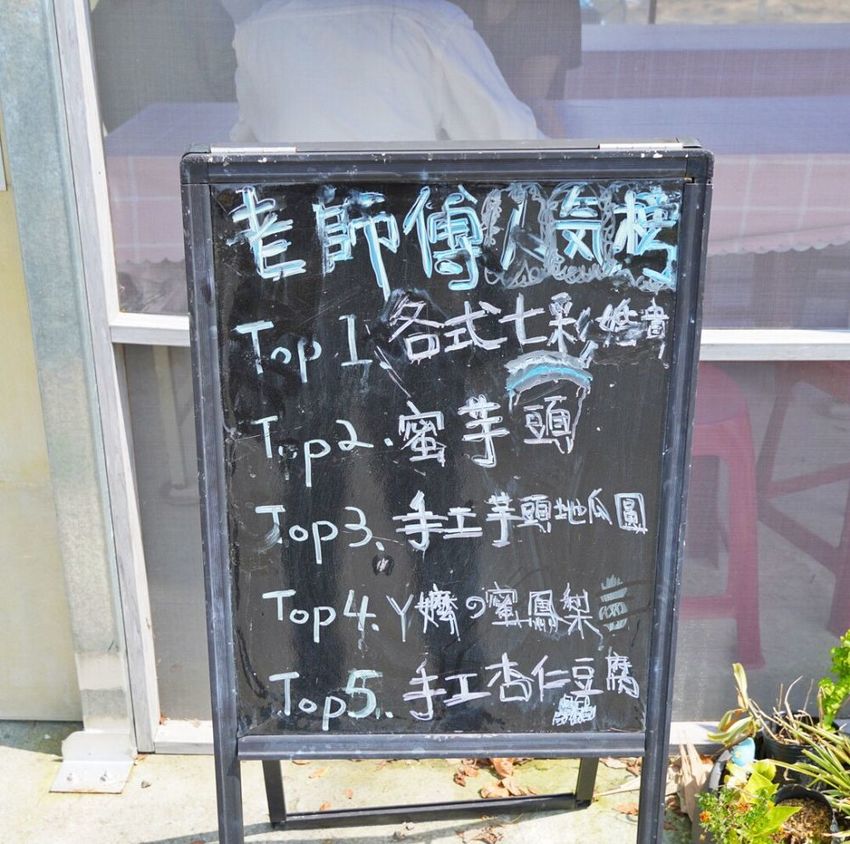 老師傅人氣榜
Top 1. 各式七彩
Top2. 蜜芋頭
Top3. 手工芋頭地瓜圓
Top4. ㄚ嬤の蜜鳳梨
Top5. 手工杏仁豆腐